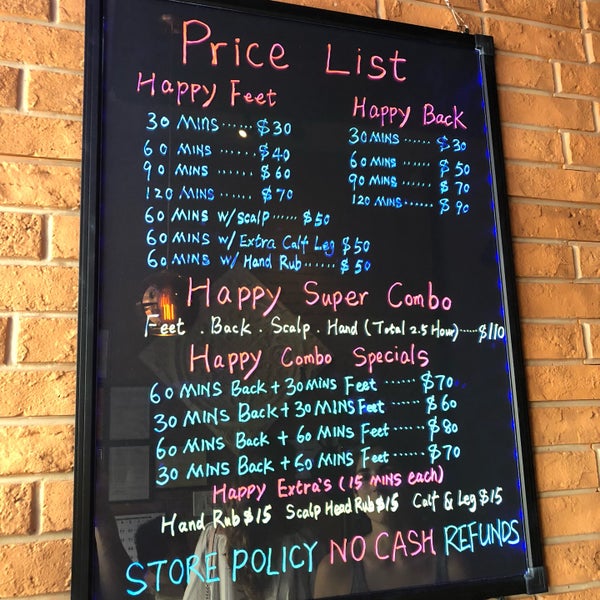 Price List
Happy Feet
30 MINS ...... $30
60 MINS ...... $40
90 MINS ...... $60
120 MINS ...... $70
60 MINS w/scalp ...... $50
60 MINS w/Extra Calf Leg $50
60 MINS w/ Hand Rub ...... $50
Happy Back
30 MINS ...... $30
60 MINS ...... $50
90 MINS ...... $70
120 MINS ...... $90
Happy Super Combo
Feet . Back . Scalp . Hand (Total 2.5 Hour) ...... $110
Happy Combo Specials
60 MINS Back + 30 MINS Feet ...... $70
30 MINS Back + 30 MINS Feet ...... $60
60 MINS Back + 60 MINS Feet ...... $80
30 MINS Back + 60 MINS Feet ...... $70
Happy Extra's (15 MINS each)
Hand Rub $15 Scalp Head Rub $15 Calf & Leg $15
STORE POLICY NO CASH REFUNDS